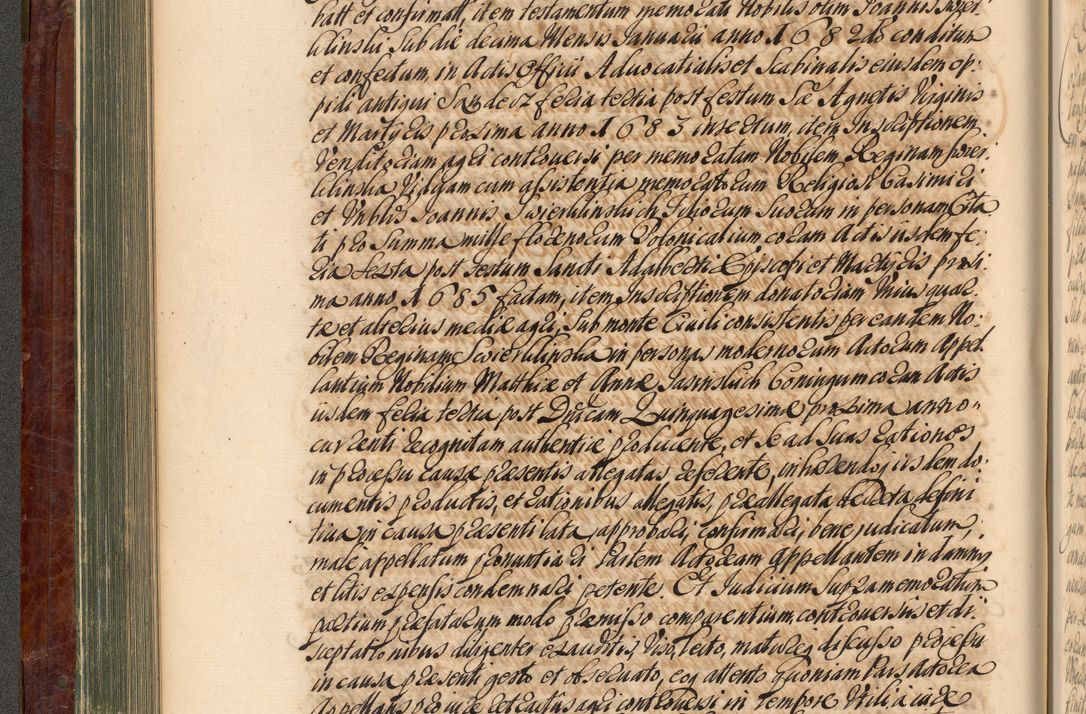 batt et confirmatt, item testamentum memorati Nobilis olim Joannis Swier
klinski sub die decima Mensis Januarii anno 1682do conditum
et confectum, in Actis Officii Advocatialis et Scabinalis eiusdem op-
pidi antiqui Sandecz feria tertia post festum Sae Agnetis Virginis
et Martyris proxima anno 1683 insertum, item Inscriptionem
Venditoriam agri controversi per memoratam Nobilem Reginam Swier
klinska Viduam cum assistentia memoratorum Religiosi Casimiri
et Nobilis Joannis Swierklinskich Filiorum Suorum in personam Cita
ti pro Summa mille florenorum Polonicalium coram Actis iisdem fe-
ria sexta post festum Sancti Adalberti Episcopi et Martyris proxi-
ma anno 1685 factam, item Inscriptionem donatoriam Unius quar
tae et alterius mediae agri, sub monte Civili consistentis per eandem No-
bilem Reginam Swierklinska in personas modernorum Actorum Appel
lantium Nobilium Matthiae et Annae Jasinskich Coniugum coram Actis
iisdem feria tertia post Dnicam Quinquagesimae proxima anno
currenti recognitam authentice producente, et se ad suas rationes
in processu causae praesentis allegatas referente, inhaerendoq iisdem do-
cumentis productis, et rationibus allegatis, praeallegata decreta defini
tiva in causa praesenti lata approbari, confirmari, bene judicatum,
male appellatum pronuntiari Partem Actoream appellantem in damnis
et litis expensis condemnari petente. Et Judicium supramemoratum
partium praefatarum modo praemisso comparentium, controversiis et di
sceptationibus diligenter exauditis, Viso, lecto, matureq discusso processu
in causa praesenti gesto et observato, eoq attento quoniam Pars Actorea
Appellans pro iure et tactus agri controversi in tempore Utili a iure